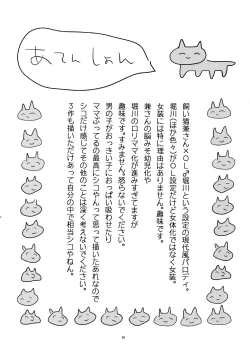 あてんしょん
飼い猫兼さん×OL♂堀川という設定の現代風パロディ。
堀川(ほか色々)がOL設定だけど女体化ではなく女装。
女装には特に理由はありません。趣味です。
兼さんの脳みそ幼児化や
堀川のロリママ化が進みすぎてますが
趣味です。すみません。怒らないでください。
男の子がおっきい子におっぱい吸わせたり
ママぶってるの最高にシコやんって思って描いたあれなので
シコだけ感じてその他のことは深く考えないでください。
3作も描いただけあって自分の中で相当シコやねん。